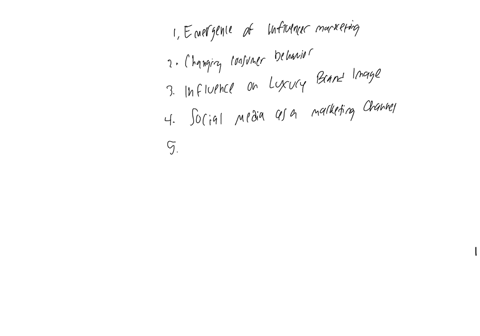 1. Emergence of Influencer marketing
2. Changing consumer behavior
3. Influence on Luxury Brand Image
4. Social media as a marketing Channel
5.